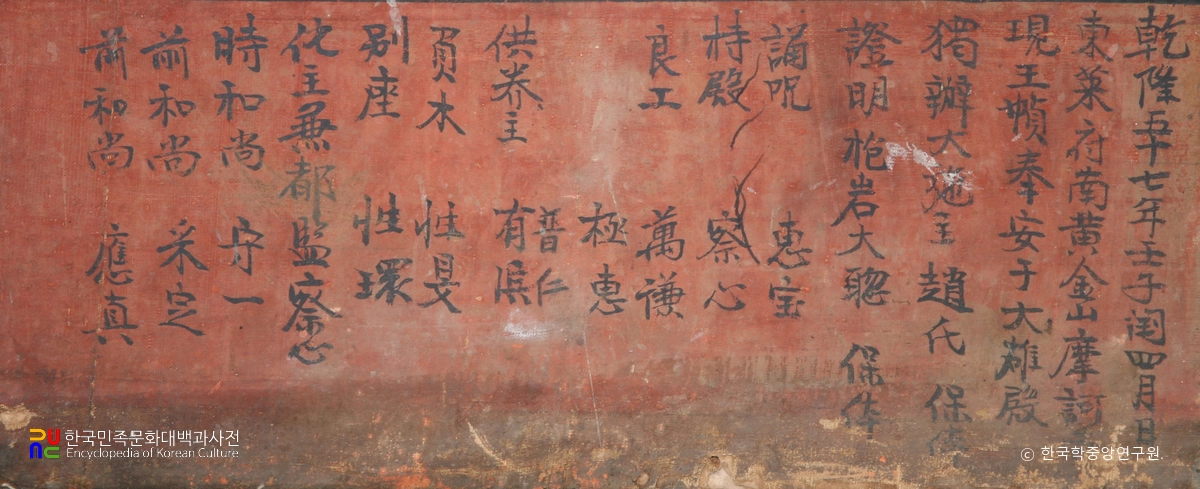 乾隆五十七年壬子閏四月日
東萊府南黃金山摩訶
現王幀奉安于大雄殿
獨辦大施主 趙氏 保体
證明 枹岩大聦 保体
誦呪 惠宝
持殿 察心
良工 萬謙
極惠
供养主 普仁
有
負木 性旻
別座 性環
化主兼都監 察心
時和尚 守一
前和尚 采定
前和尚 應真
PUNC 한국민족문화대백과사전
Encyclopedia of Korean Culture
© 한국학중앙연구원.